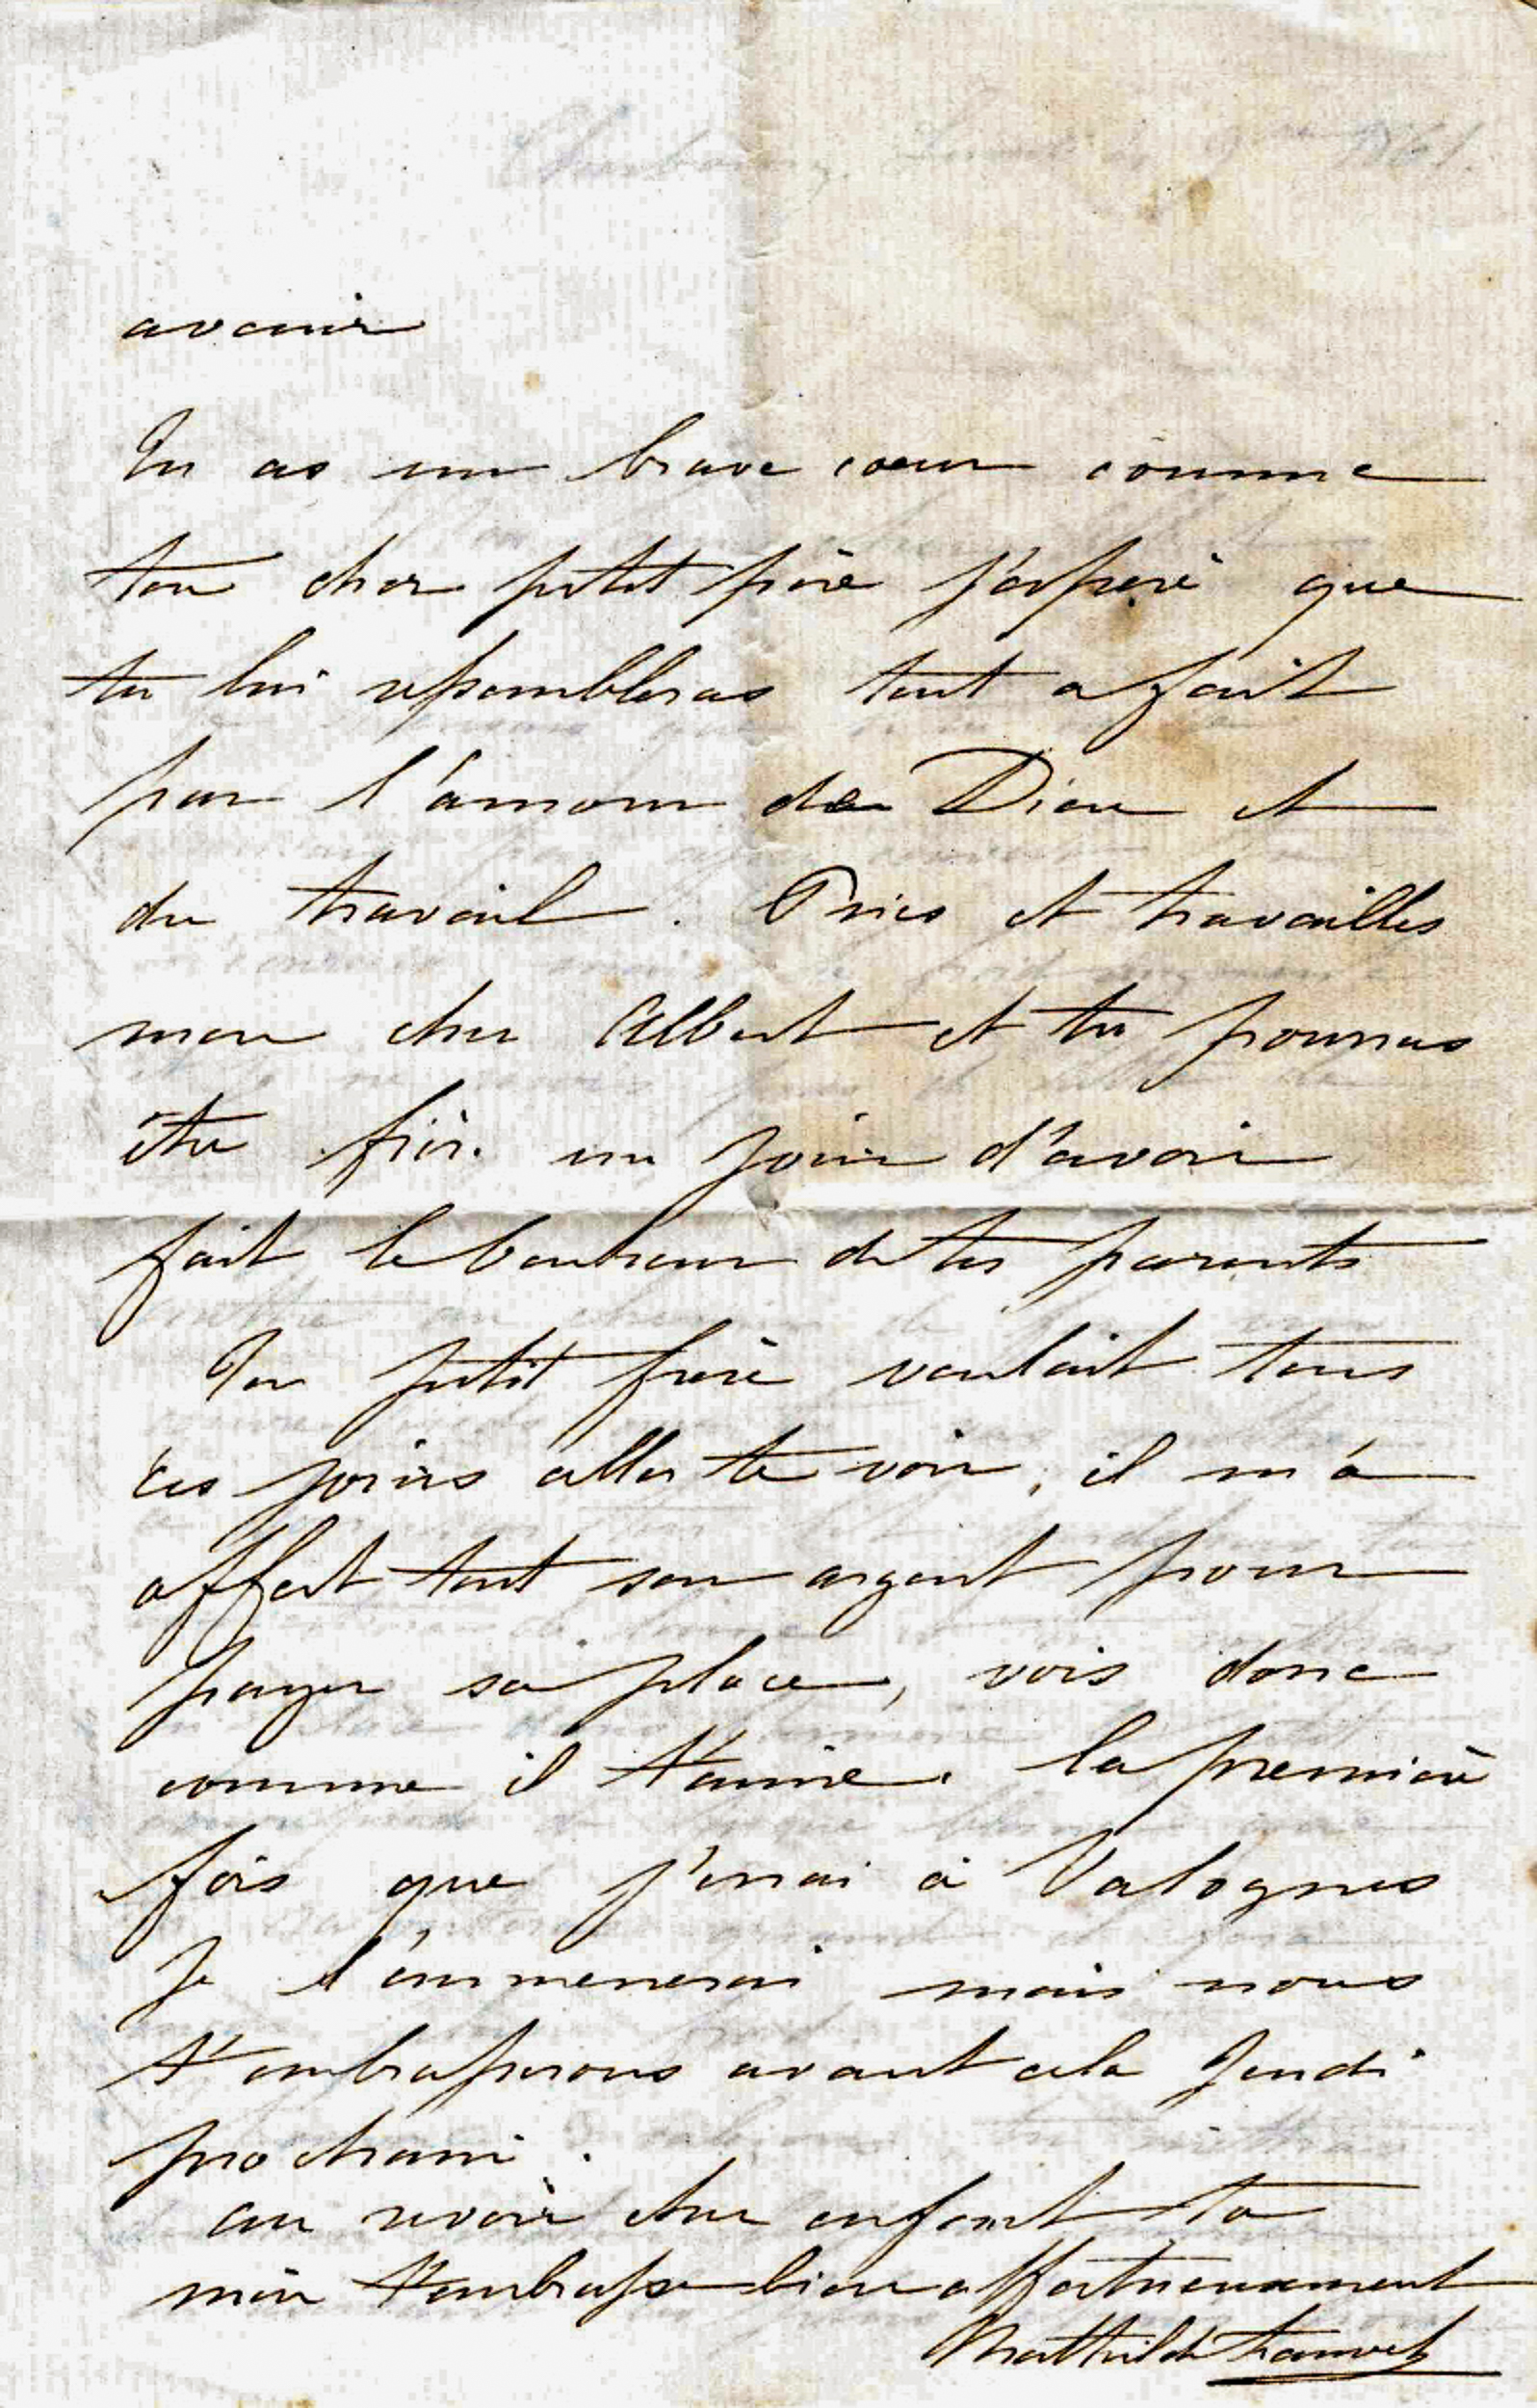 avenir
Tu as un brave coeur comme
ton cher petit père j'espère que
tu lui ressembleras tout a fait
par l'amour de Dieu et
du travail. Pries et travailles
mon cher Albert et tu pourras
être fier un jour d'avoir
fait le bonheur de tes parents
Ton petit frère voulait tous
ces jours aller te voir, il m'a
offert tout son argent pour
payer sa place, vois donc
comme il t'aime. la première
fois que j'irai à Valognes
Je l'emmenerai mais nous
t'embrasserons avant cela Jeudi
prochain.
au revoir cher enfant ta
mère t'embrasse bien affectueusement
Mathilde